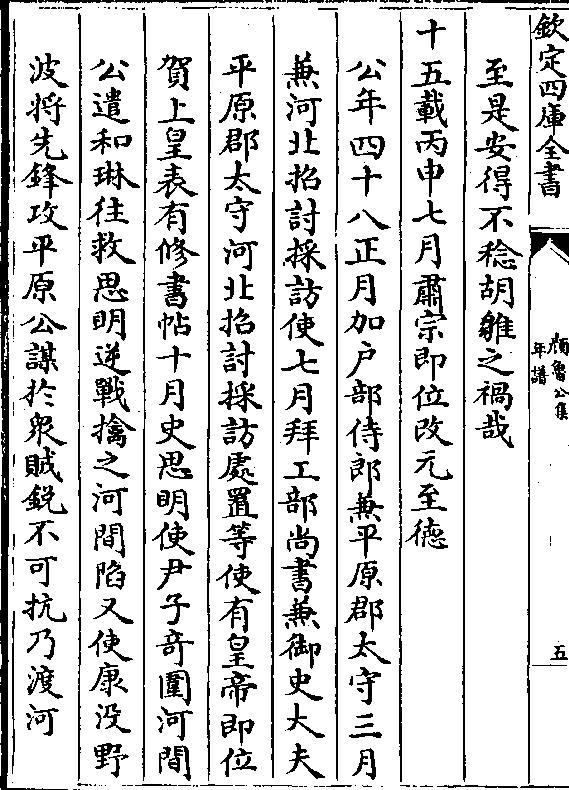 欽定四庫全書
顏魯公集
年譜
五
至是安得不稔胡雛之禍哉
十五載丙申七月肅宗即位改元至德
公年四十八正月加户部侍郎兼平原郡太守三月
兼河北招討採訪使七月拜工部尚書兼御史大夫
平原郡太守河北招討採訪處置等使有皇帝即位
賀上皇表有修書帖十月史思明使尹子竒圍河間
公遣和琳往救思明逆戰擒之河間陷又使康没野
波将先鋒攻平原公謀於衆賊鋭不可抗乃渡河